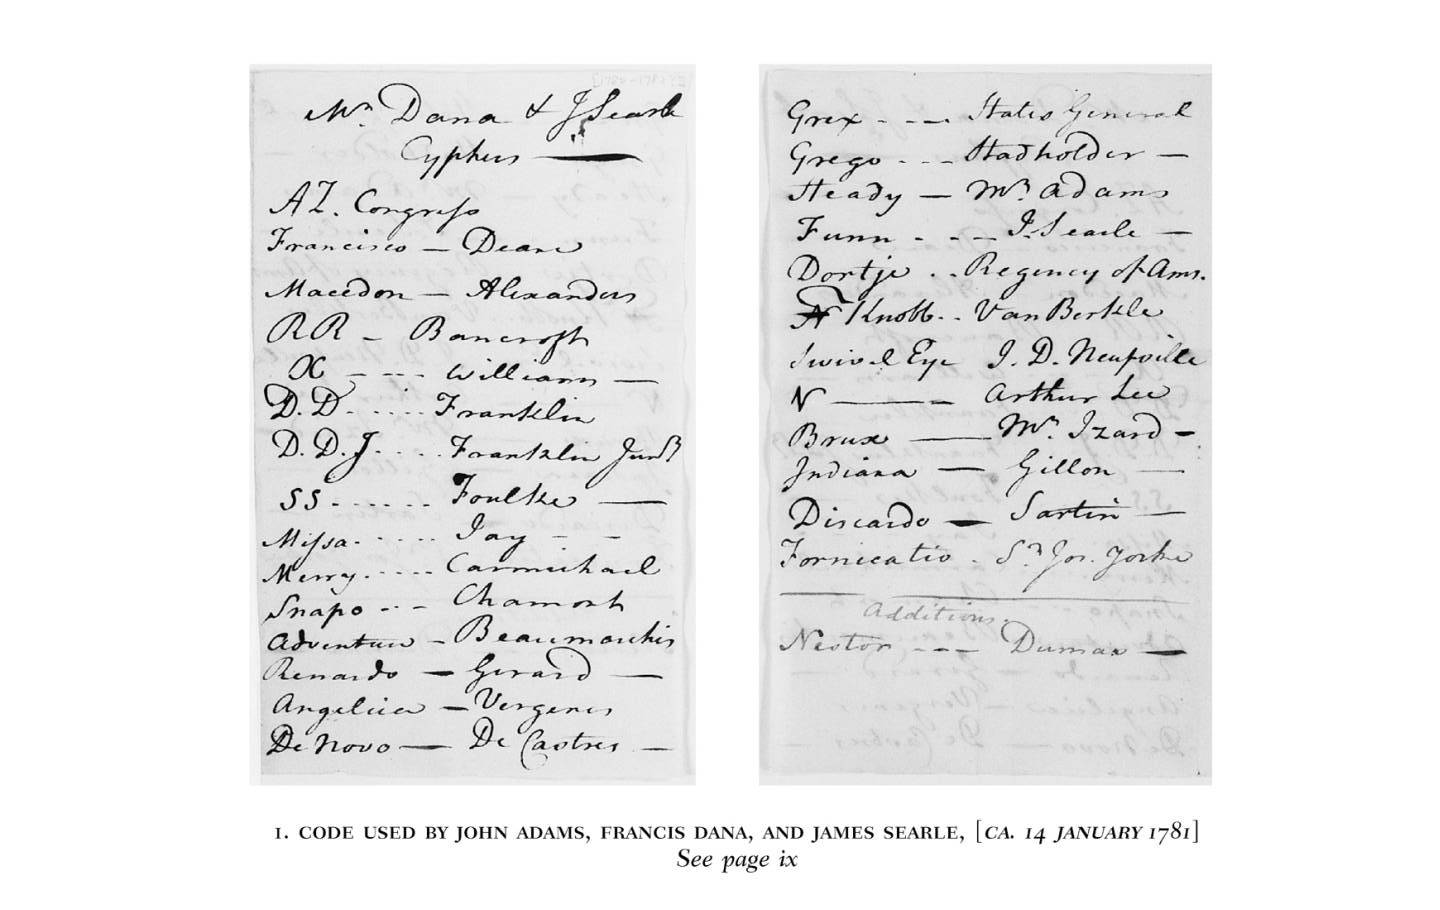 Mr. Dana & J Searle
Cyphers
AZ. Congress
Francisco — Deane
Macedon — Alexanders
RR — Bancroft
X - - - - Williams —
D.D. . . . . Franklin
D.D.J. . . . . Franklin Junr
SS - - - - - - Foulke —
Missa. . . . . . Jay - -
Merry. . . . . Carmichael
Snapo - - - Chamont
Adventure - Beaumarchis
Renardo — Gerard —
Angelica — Vergenes
De Novo — De Castres —
Grex - - — States General
Grego - - - Stadholder —
Steady — Mr. Adams
Funn - - - J. Searle —
Dortje . . Regency of Ams.
Knobb. . . Van Berkle
Swivel Eye J. D. Neufville
N — Arthur Lee
Brux — Mr. Izard —
Indiana — Gillon —
Discardo — Sartin —
Fornicatio . Sr. Jos. Yorke
Additions.
Nestor - - - Dumas —
1. CODE USED BY JOHN ADAMS, FRANCIS DANA, AND JAMES SEARLE, [CA. 14 JANUARY 1781]
See page ix